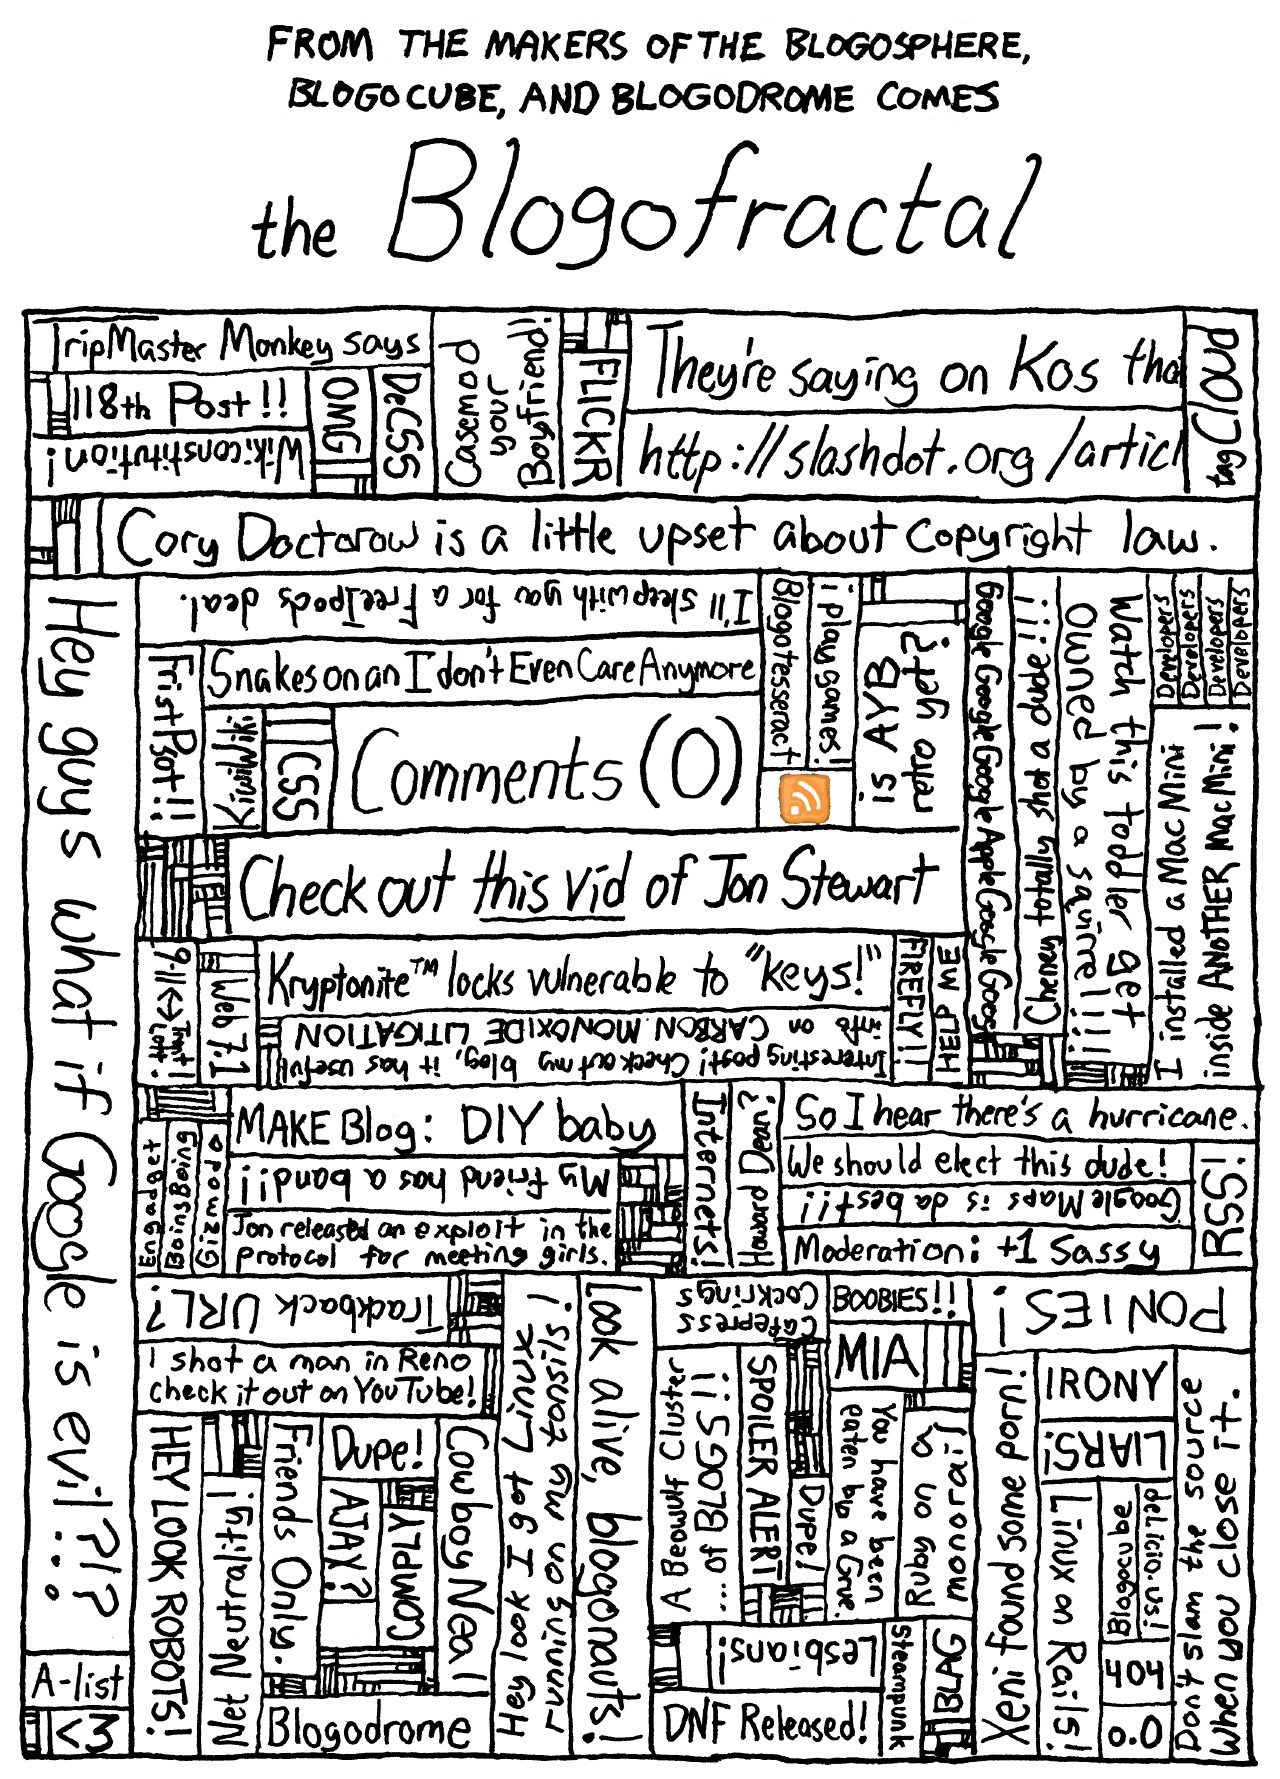 FROM THE MAKERS OF THE BLOGOSPHERE,
BLOGOCUBE, AND BLOGODROME COMES
the Blogofractal
TripMaster Monkey says
118th Post!!
Wikiconstitution!
OMG
DeCSS
Casemod
your
Boyfriend!
FLICKR
They're saying on Kos that
http://slashdot.org/articl
tag Cloud
Cory Doctorow is a little upset about copyright law.
Hey guys what if Google is evil?!?...
I'll sleep with you for a FreeIpods deal.
Snakes on an I don't Even Care Anymore
FristPsot!!
KiwiWiki
CSS
Comments (0)
Blogotesseract
i play games!
is AYB
retro yet?
Google Google Google Apple Google Goog
Cheney totally shot a dude!!!
Watch this toddler get
owned by a squirrel!!!
Developers
Developers
Developers
Developers
I installed a Mac Mini
inside ANOTHER Mac Mini!
Check out this vid of Jon Stewart
9-11<->Trent
Lott!
Web 7.1
Kryptonite™ locks vulnerable to "keys!"
Interesting post! Check out my blog, it has useful
info on CARBON MONOXIDE LITIGATION
FIREFLY!!
HELP ME
Engadget
BoingBoing
Gizmodo
MAKE Blog: DIY baby
My friend has a band!!
Jon released an exploit in the
protocol for meeting girls.
Internets!
Howard Dean?
So I hear there's a hurricane.
We should elect this dude!
Google Maps is da best!!
Moderation: +1 Sassy
RSS!
Trackback URL?
I shot a man in Reno
check it out on YouTube!
HEY LOOK ROBOTS!
Net Neutrality!
Friends Only.
Dupe!
AJAX?
COMPLY
Cowboy Neal
Blogodrome
Hey look I got Linux
running on my tonsils!
Look alive, blogonauts!
Cafepress
Cockrings
BOOBIES!!
MIA
A Beowulf Cluster
of... BLOGS!!
SPOILER ALERT
Dupe!
You have been
eaten by a Grue.
Ruby on a
monorail
Lesbians!
DNF Released!
Steampunk
BLAG
PONIES!
Xeni found some porn!
IRONY
LIARS!
Linux on Rails!
Blogocube
del.icio.us!
404
o.O
Don't slam the source
when you close it.
A-list
<3